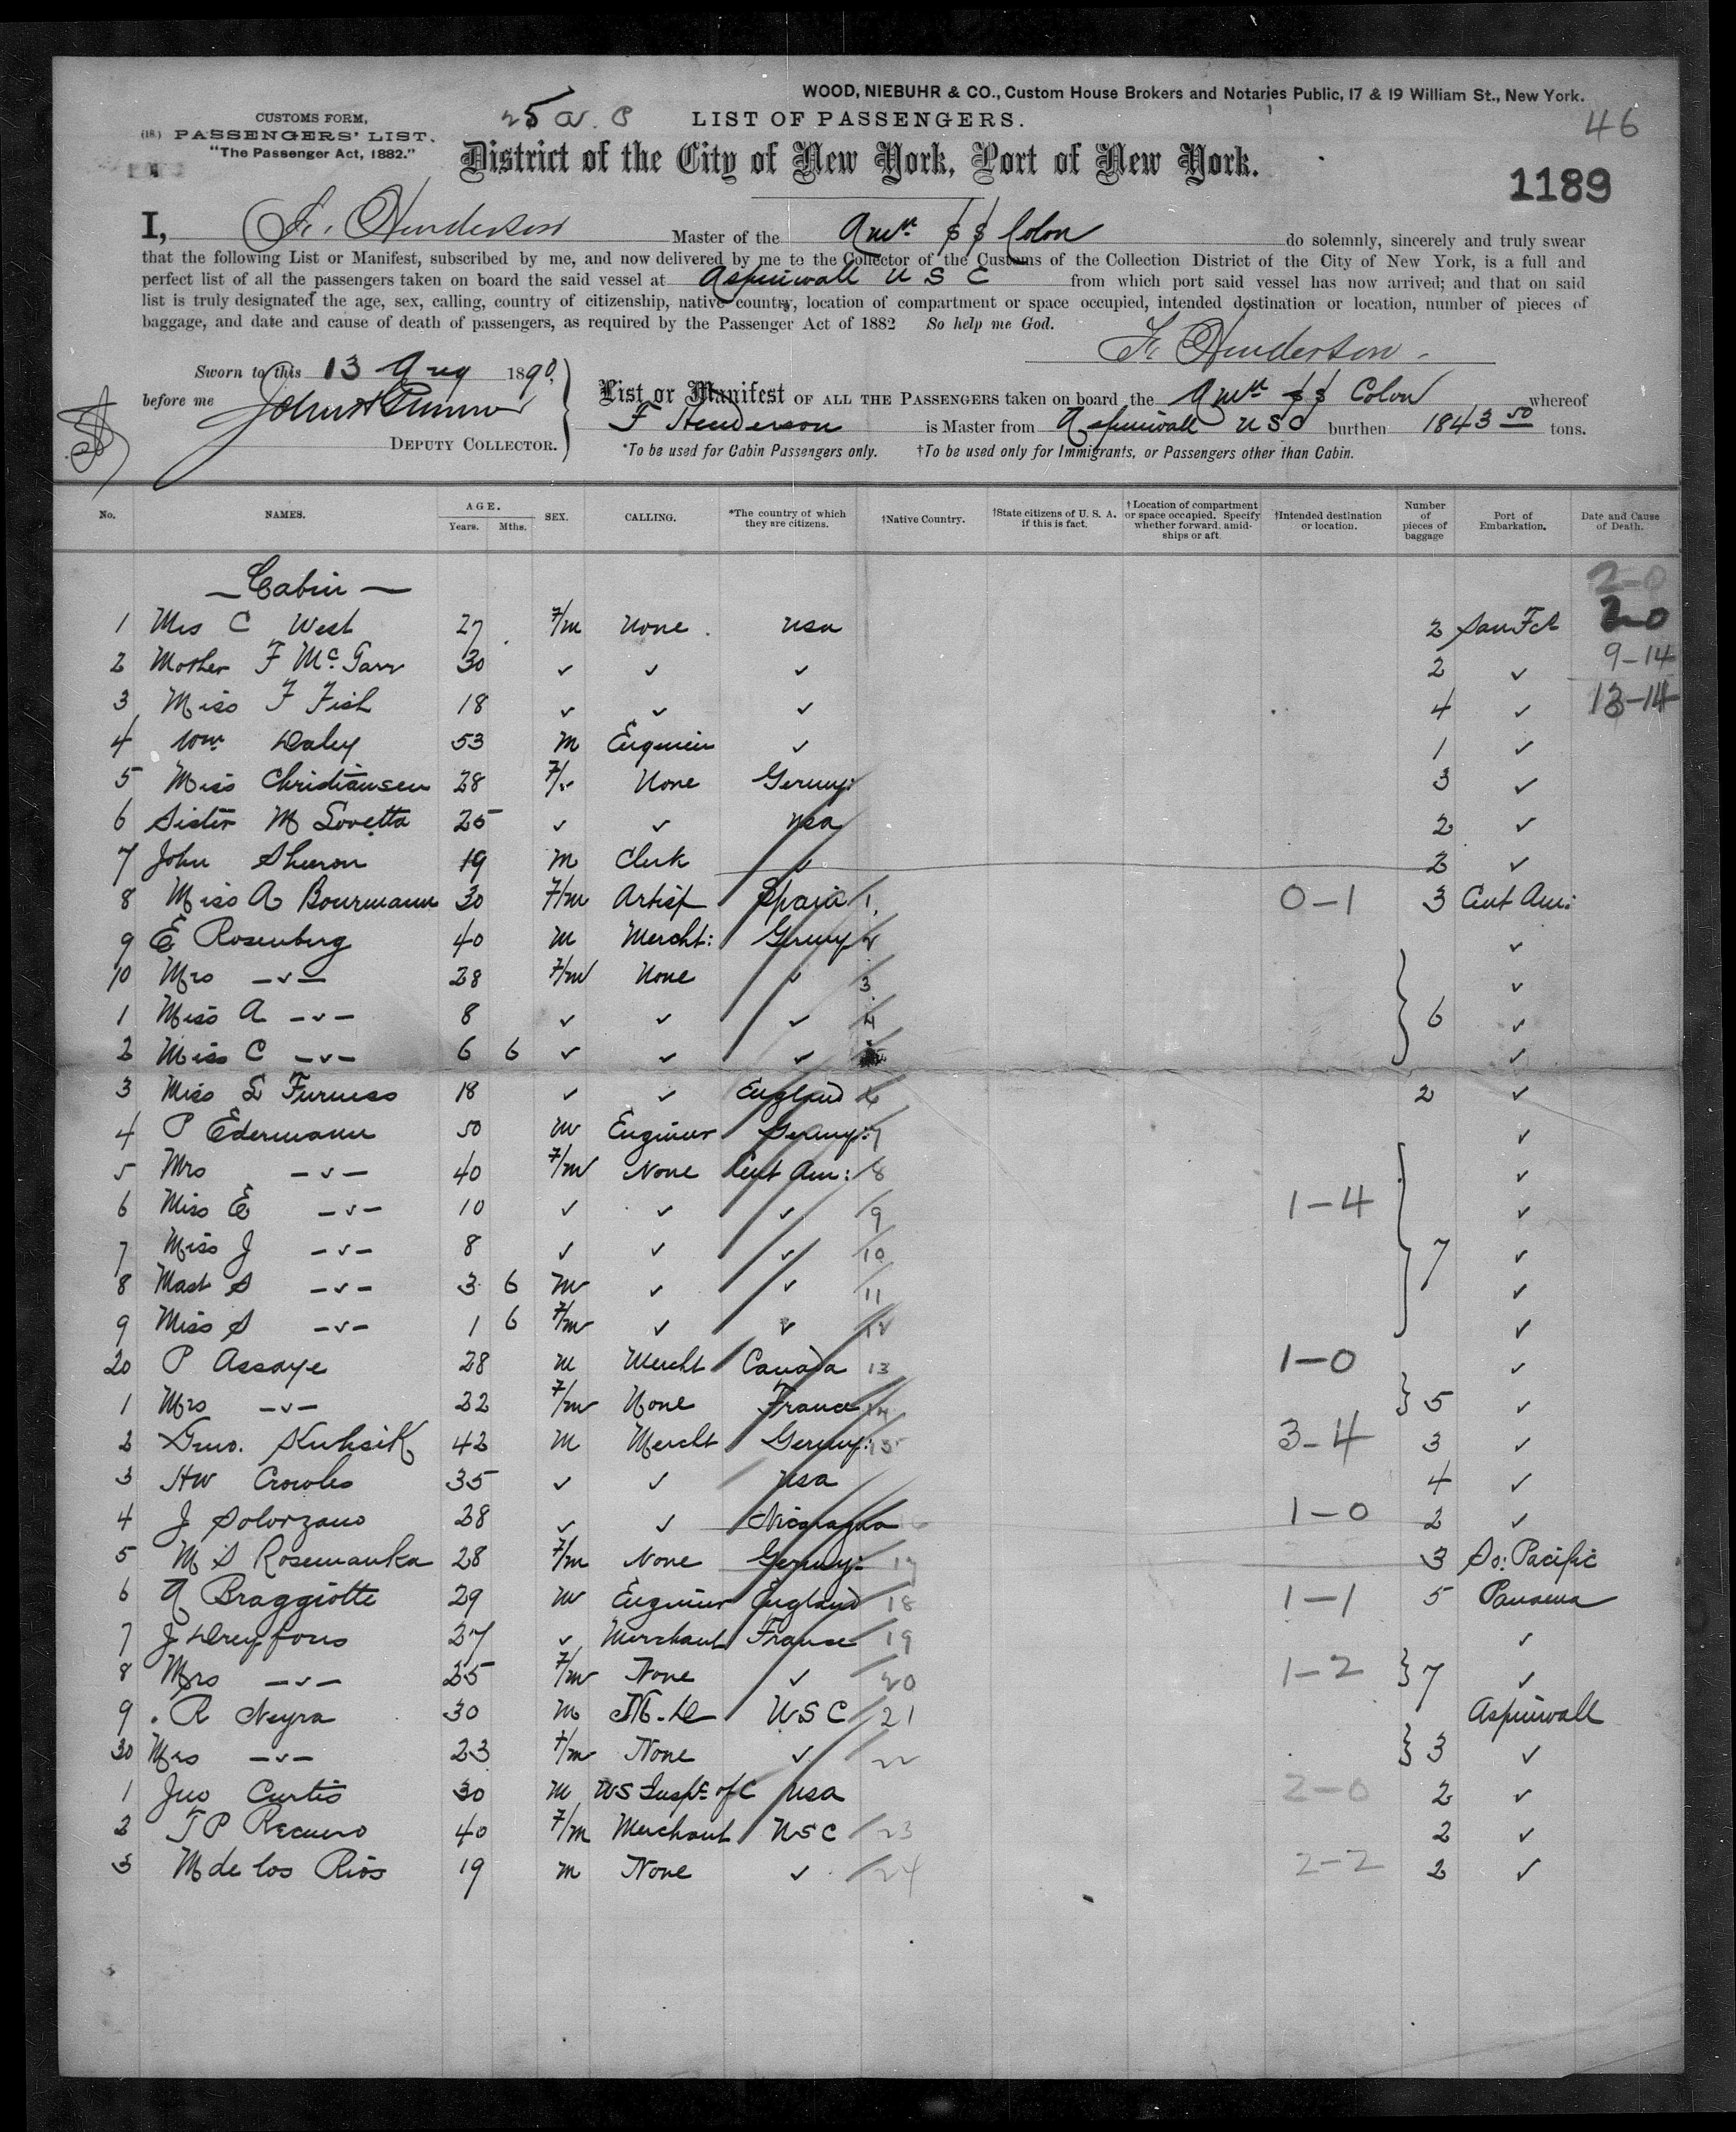 WOOD, NIEBUHR & CO., Custom House Brokers and Notaries Public, 17 & 19 William St., New York.
CUSTOMS FORM,
(18.) PASSENGERS' LIST.
"The Passenger Act, 1882."
25 a. c
LIST OF PASSENGERS.
46
District of the City of New York, Port of New York.
1189
I, F. Henderson Master of the Amn SS Colon do solemnly, sincerely and truly swear
that the following List or Manifest, subscribed by me, and now delivered by me to the Collector of the Customs of the Collection District of the City of New York, is a full and
perfect list of all the passengers taken on board the said vessel at Aspinwall U S C from which port said vessel has now arrived; and that on said
list is truly designated the age, sex, calling, country of citizenship, native country, location of compartment or space occupied, intended destination or location, number of pieces of
baggage, and date and cause of death of passengers, as required by the Passenger Act of 1882 So help me God.
F. Henderson
Sworn to this 13 Aug 1890,
before me
DEPUTY COLLECTOR.
List or Manifest OF ALL THE PASSENGERS taken on board the Amn SS Colon whereof
F Henderson is Master from Aspinwall USC burthen 1843 50 tons.
*To be used for Cabin Passengers only. †To be used only for Immigrants, or Passengers other than Cabin.
No. NAMES. AGE. Years. Mths. SEX. CALLING. *The country of which they are citizens. †Native Country. †State citizens of U. S. A. if this is fact. †Location of compartment or space occupied. Specify whether forward, amidships or aft. †Intended destination or location. Number of pieces of baggage Port of Embarkation. Date and Cause of Death.
— Cabin — 2-0
1 Mrs C West 27 F/m None. usa 2 San Fct 2-0
2 Mother F Mc Garr 30 ✓ ✓ ✓ 2 ✓ 9-14
3 Miss F Fish 18 ✓ ✓ ✓ 4 ✓ 13-14
4 Wm Daley 53 M Engineer ✓ 1 ✓
5 Miss Christiansen 28 F/✓ None Germy: 3 ✓
6 Sister M Lovetta 25 ✓ ✓ usa 2 ✓
7 John 19 M Clerk ✓ 2 ✓
8 Miss A Bourmann 30 F/m Artist Spain 1 0-1 3 Cent Am:
9 E Rosenberg 40 M Mercht: Germy 2 ✓
10 Mrs -✓- 28 F/m None ✓ 3 ✓
1 Miss A -✓- 8 ✓ ✓ ✓ 4 6 ✓
2 Miss C -✓- 6 6 ✓ ✓ ✓ ✓
3 Miss L Furness 18 ✓ ✓ England 6 2 ✓
4 P Edermann 50 M Engineer Germy: 7 ✓
5 Mrs -✓- 40 F/m None Cent Am: 8 ✓
6 Miss E -✓- 10 ✓ ✓ ✓ 9 1-4 ✓
7 Miss J -✓- 8 ✓ ✓ ✓ 10 7 ✓
8 Mast S -✓- 3 6 M ✓ ✓ 11 ✓
9 Miss S -✓- 1 6 F/m ✓ ✓ 12 ✓
20 P Assaye 28 M Mercht Canada 13 1-0 ✓
1 Mrs -✓- 22 F/m None France 14 5 ✓
2 42 M Mercht Germy: 15 3-4 3 ✓
3 HW Crowles 35 ✓ ✓ usa 4 ✓
4 J Solorzano 28 ✓ ✓ Nicaragua 16 1-0 2 ✓
5 M S Rosemanka 28 F/m None Germy: 17 3 So: Pacific
6 A Braggiotte 29 M Engineer England 18 1-1 5 Panama
7 J Dreyfous 37 ✓ Merchant France 19 ✓
8 Mrs -✓- 25 F/m None ✓ 20 1-2 7 ✓
9 R Neyra 30 M M.D USC 21 Aspinwall
30 Mrs -✓- 23 F/m None ✓ 22 3 ✓
1 Jno Curtis 30 M US Inspr of C usa 2-0 2 ✓
2 J P Recuero 40 F/m Merchant USC 23 2 ✓
3 M de los Rios 19 M None ✓ 24 2-2 2 ✓